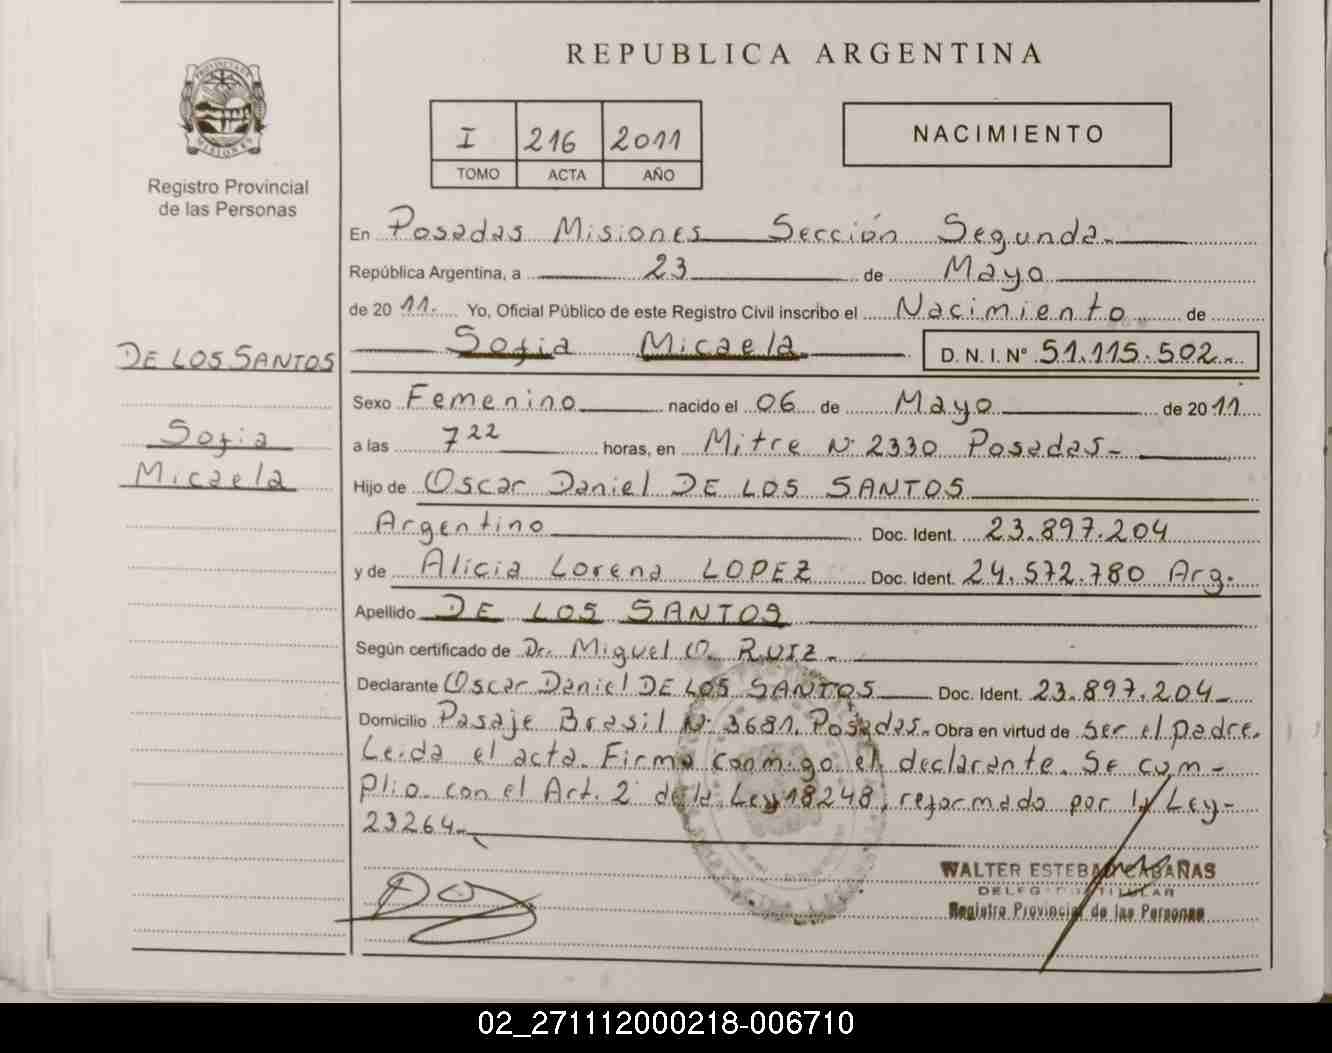 REPUBLICA ARGENTINA
PROVINCIA DE
MISIONES
Registro Provincial
de las Personas
I 216 2011
TOMO ACTA AÑO
NACIMIENTO
En Posadas Misiones Sección Segunda.
República Argentina, a 23 de Mayo
de 2011. Yo, Oficial Público de este Registro Civil inscribo el Nacimiento de
Sofia Micaela. D. N. I. N° 51.115.502.-
DE LOS SANTOS
Sofia
Micaela
Sexo Femenino nacido el 06 de Mayo de 2011
a las 7 22 horas, en Mitre N° 2330 Posadas-
Hijo de Oscar Daniel DE LOS SANTOS
Argentino Doc. Ident. 23.897.204
y de Alicia Lorena LOPEZ Doc. Ident. 24.572.780 Arg.
Apellido DE LOS SANTOS
Según certificado de Dr. Miguel O. RUIZ-
Declarante Oscar Daniel DE LOS SANTOS Doc. Ident. 23.897.204-
Domicilio Pasaje Brasil N° 3681. Posadas. Obra en virtud de ser el padre.
Leida el acta. Firma conmigo el declarante. Se cum-
plio con el Art. 2 de la Ley 18248, reformado por la Ley-
23264.-
WALTER ESTEBAN CABAÑAS
DELEGADO TITULAR
Registro Provincial de las Personas
02_271112000218-006710